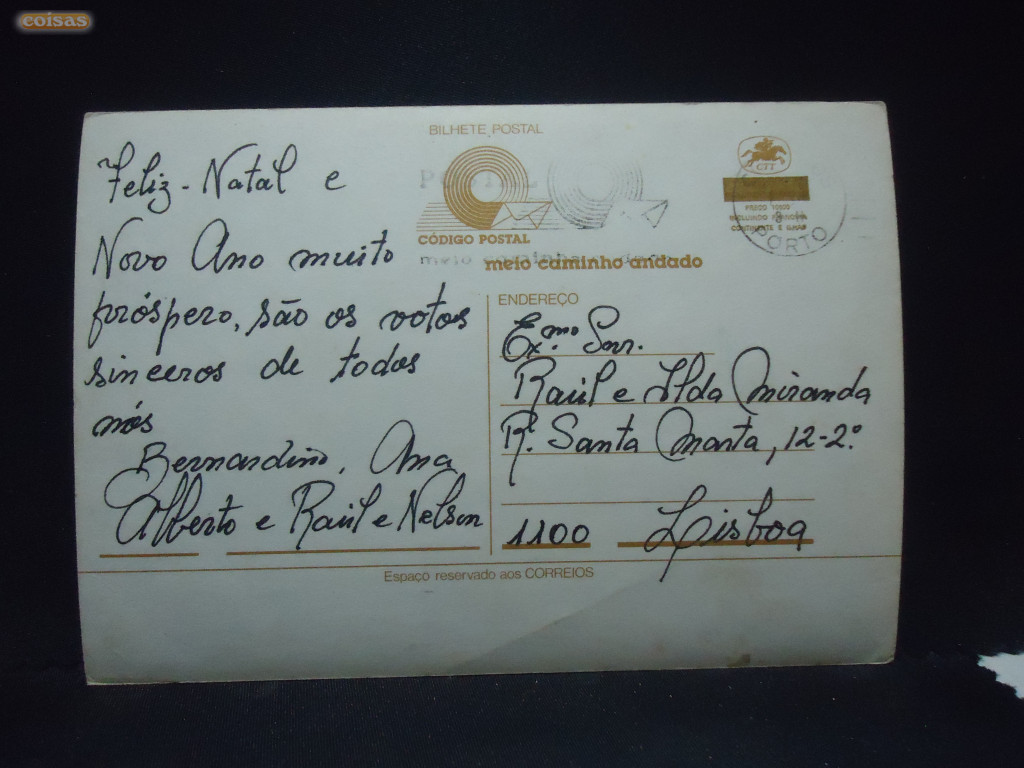 coisas
BILHETE POSTAL
CTT
CÓDIGO POSTAL
meio caminho andado
PORTO
Feliz - Natal e
Novo Ano muito
próspero, são os votos
sinceros de todos
nós
Bernardino, Ana
Alberto e Raúl e Nelson
ENDEREÇO
Ex.mo Snr.
Raúl e Ilda Miranda
R. Santa Marta, 12-2.º
1100 Lisboa
Espaço reservado aos CORREIOS